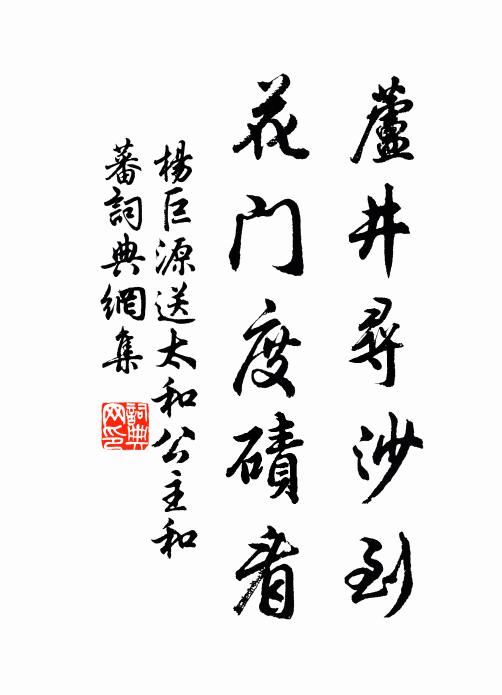 蘆井尋沙到
花門度磧看
楊巨源送太和公主和
蕃詞典網集
詞典
网印